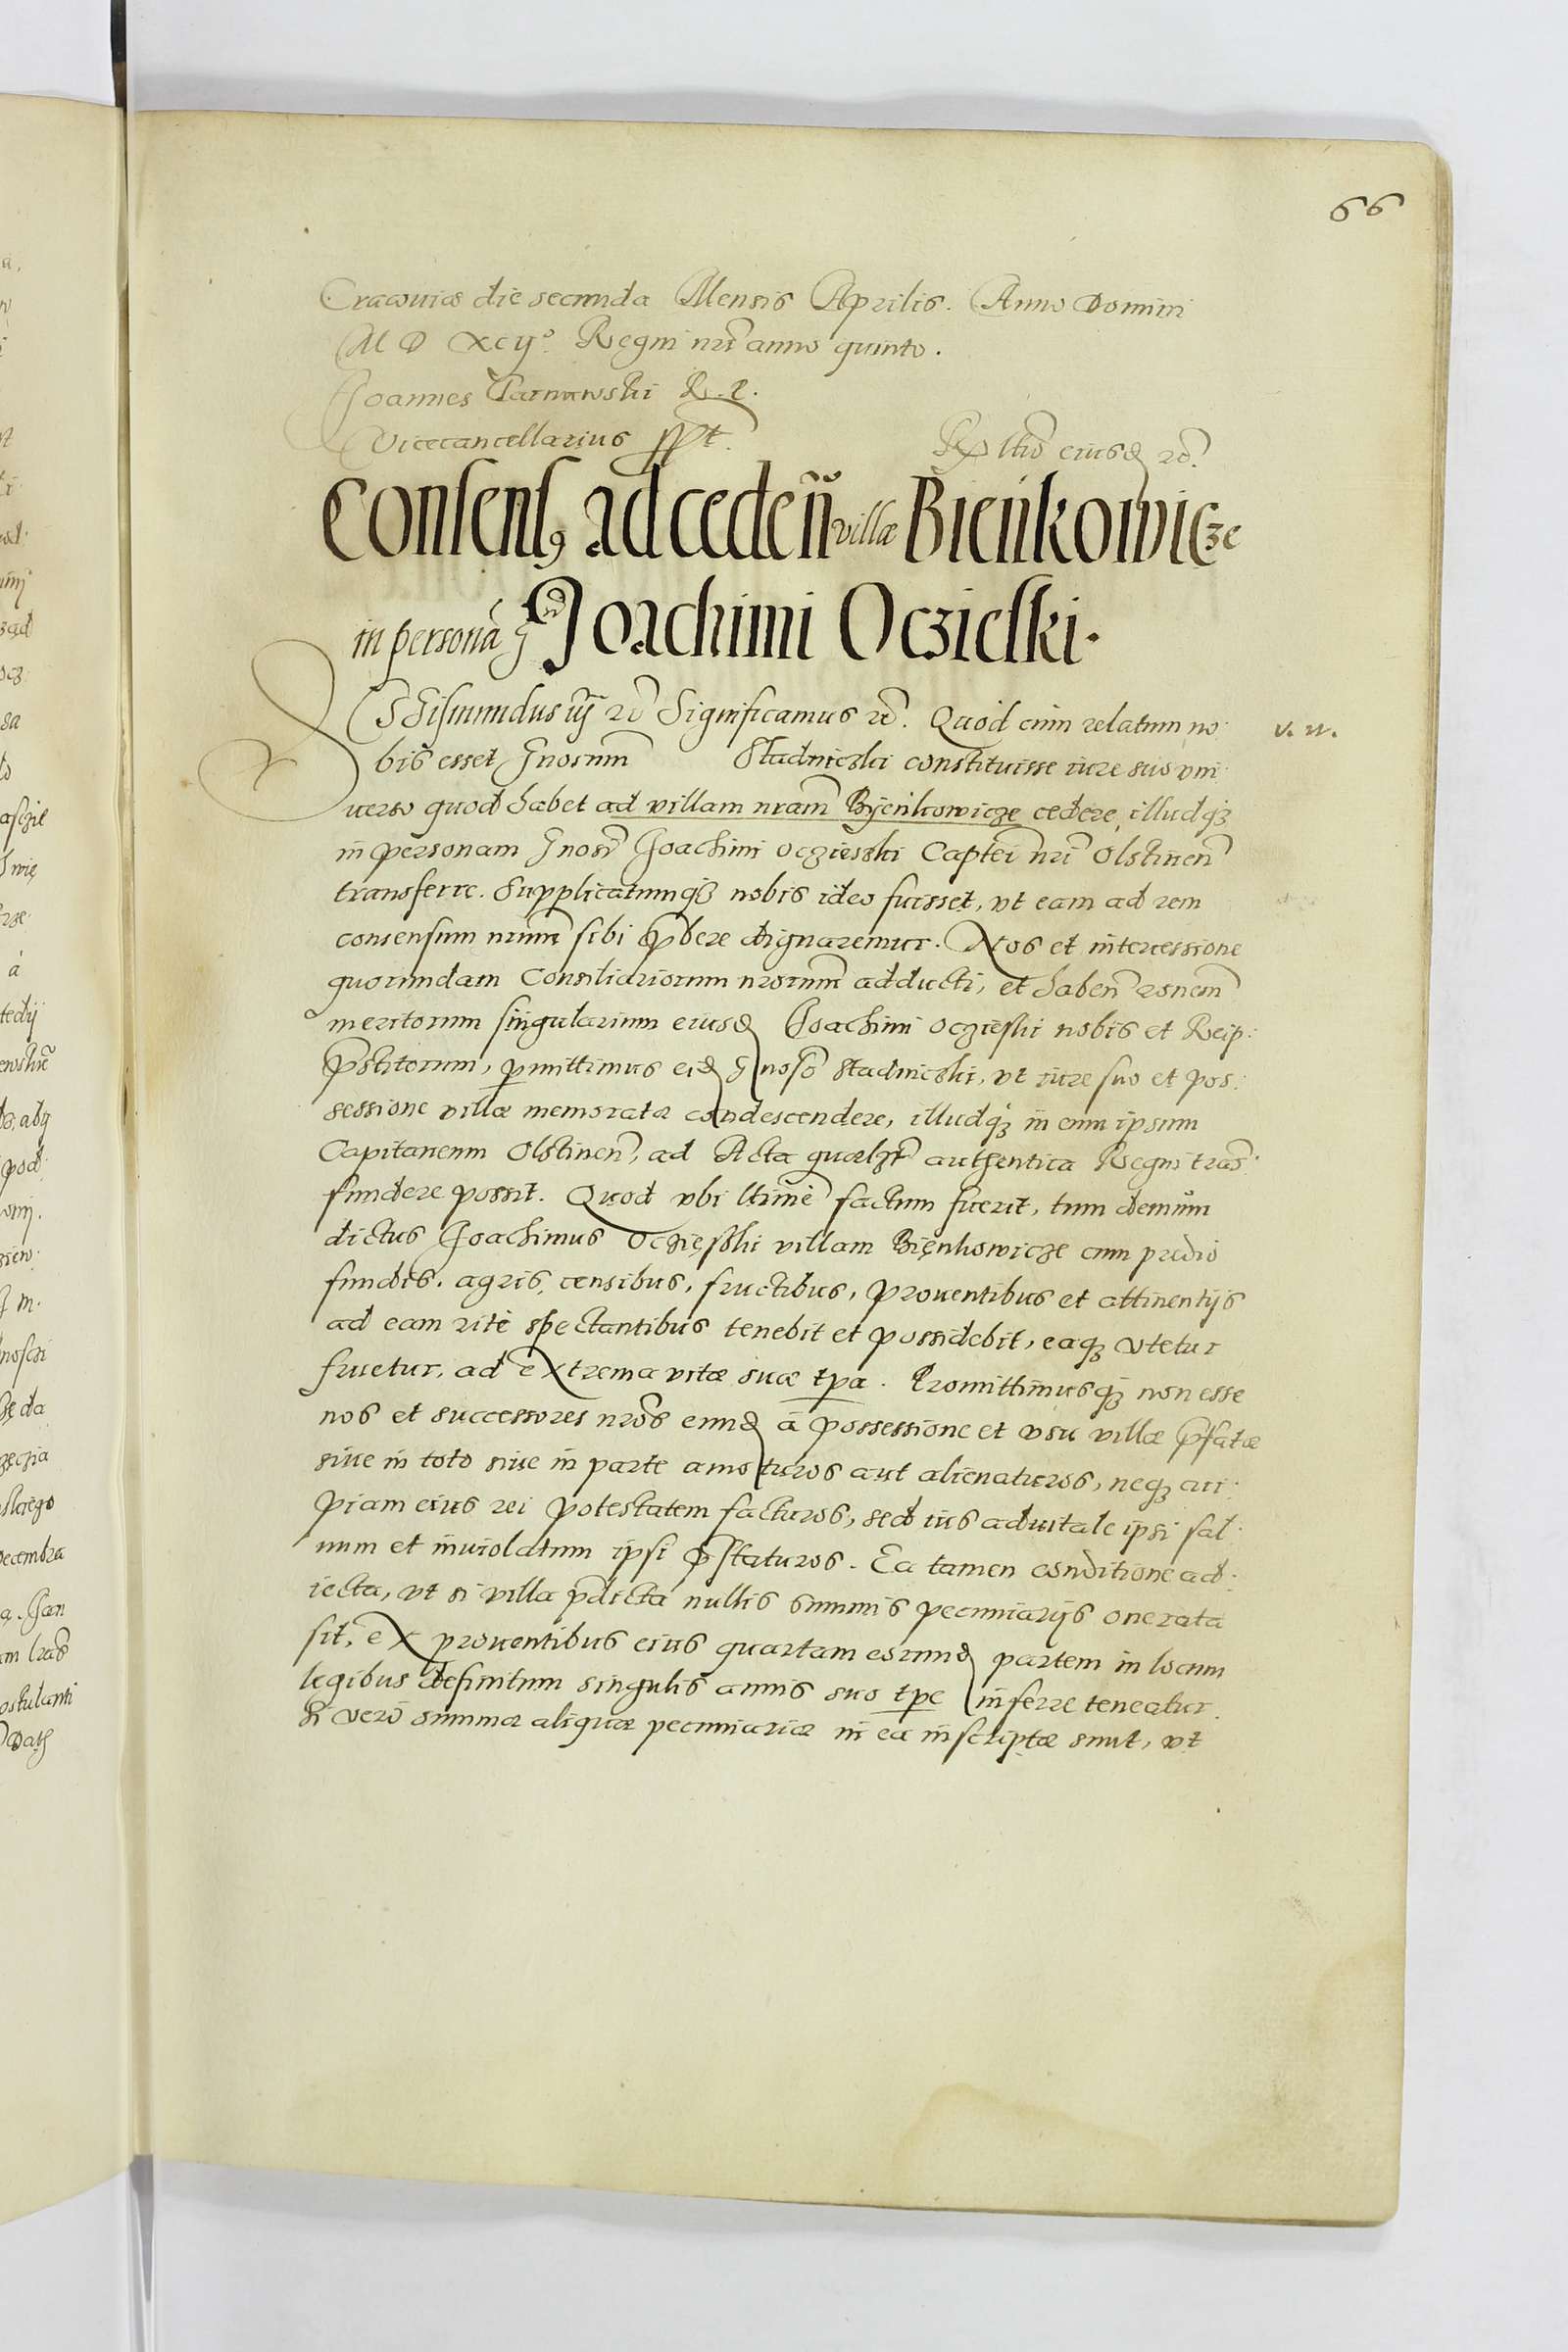 66
Cracouiæ die secunda Mensis Aprilis. Anno Domini
M D XCij° Regni nrĩ anno quinto.
Joannes Tarnowski R. P.
Vicecancellarius sspt.
Rel̃tio eiusd rc̃.
Consens9 ad cedeñ villæ Bieńkowicze
in personã Gnd Joachimi Oczieski.
SGismundus iij rc̃ Significamus rc̃. Quod cum relatum no
v. n.
bis esset Gnosum̃ Stadniczki constituisse iure suo vni
uerso quod habet ad villam nram̃ Byeńkowicze cedere, illudq3
in personam Gnosĩ Joachimi Oczieski Captei nrĩ Olstineñ
transferre. Supplicatumq3 nobis ideo fuisset, vt eam ad rem
consensum nrum̃ sibi p̃bere dignaremur. Nos et intercessione
quorundam Consiliariorum nrorum̃ adducti, et habeñ ronem̃
meritorum singularium eiusd Joachimi Oczieski nobis et Reip:
p̃stitorum, permittimus eid Gnosõ Stadnicki, vt iure suo et pos:
sessione villæ memoratæ condescendere, illudq3 in eum ipsum
Capitaneum Olstineñ, ad Acta quælz̃r authentica Regni tras̃
fundere possit. Quod vbi ltimẽ factum fuerit, tum demum
dictus Joachimus Ocziesski villam Bięnkowicze cum prædio
fundis, agris, censibus, fructibus, prouentibus et attinentijs
ad eam ritè spectantibus tenebit et possidebit, eaq3 vtetur
fruetur, ad extrema vitæ suæ tpa. Promittimusq3 non esse
nos et successores nros̃ eund à possessione et vsu villæ p̃fatæ
siue in toto siue in parte amoturos aut alienaturos, neq3 cui
piam eius rei potestatem facturos, sed ius aduitale ipsi sal
uum et inuiolatum ipsi p̃staturos. Ea tamen conditione ad
iecta, vt si villa p̃dicta nullis summis pecuniarijs onerata
sit, ex prouentibus eius quartam eorund partem in locum
legibus definitum singulis annis suo tpe inferre teneatur.
Si verò summæ aliquæ pecuniariæ in ea inscriptæ sunt, vt